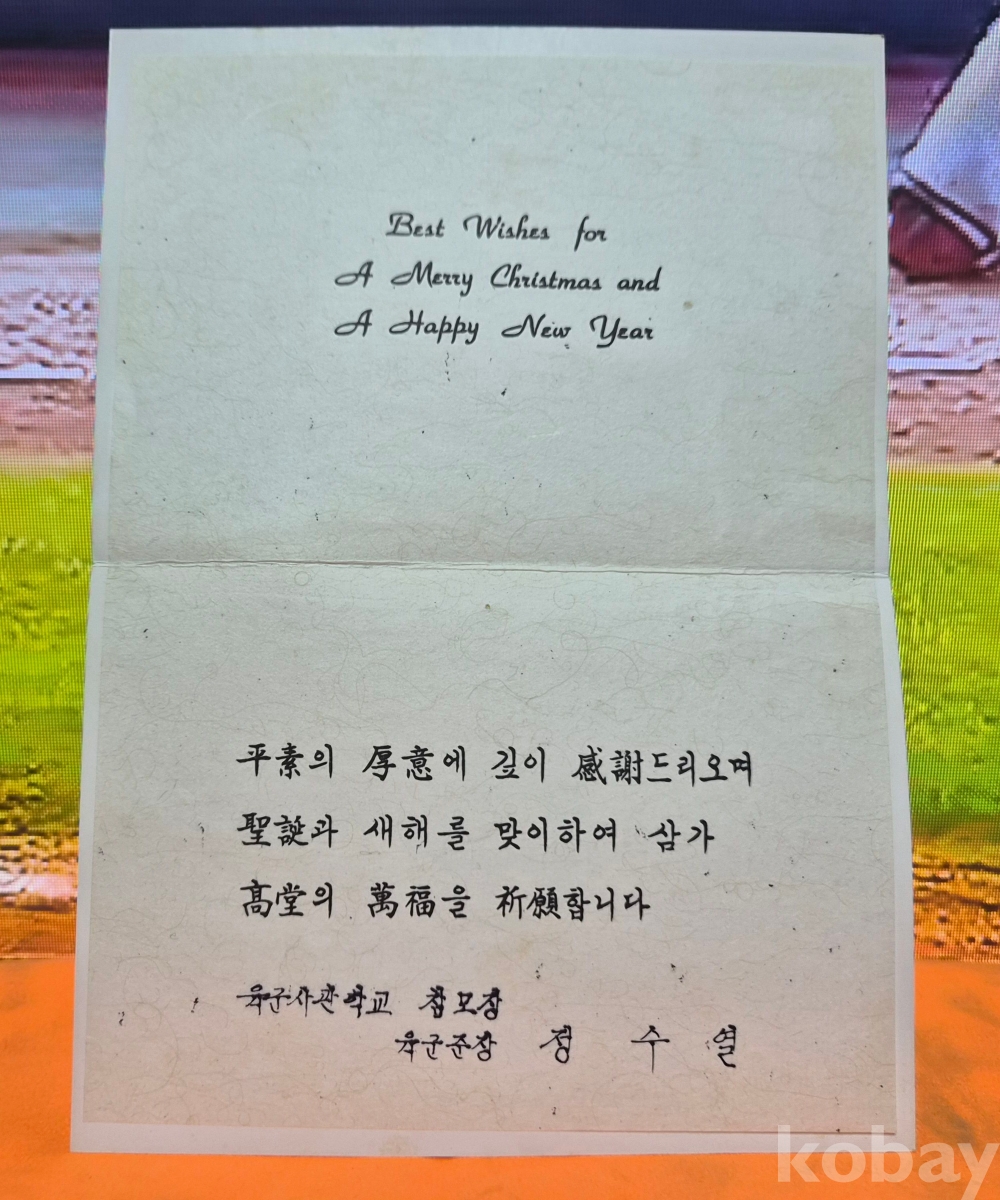 Best Wishes for
A Merry Christmas and
A Happy New Year
平素의 厚意에 깊이 感謝드리오며
聖誕과 새해를 맞이하여 삼가
高堂의 萬福을 祈願합니다
육군사관학교 참모장
육군준장 정 수 열
kobay